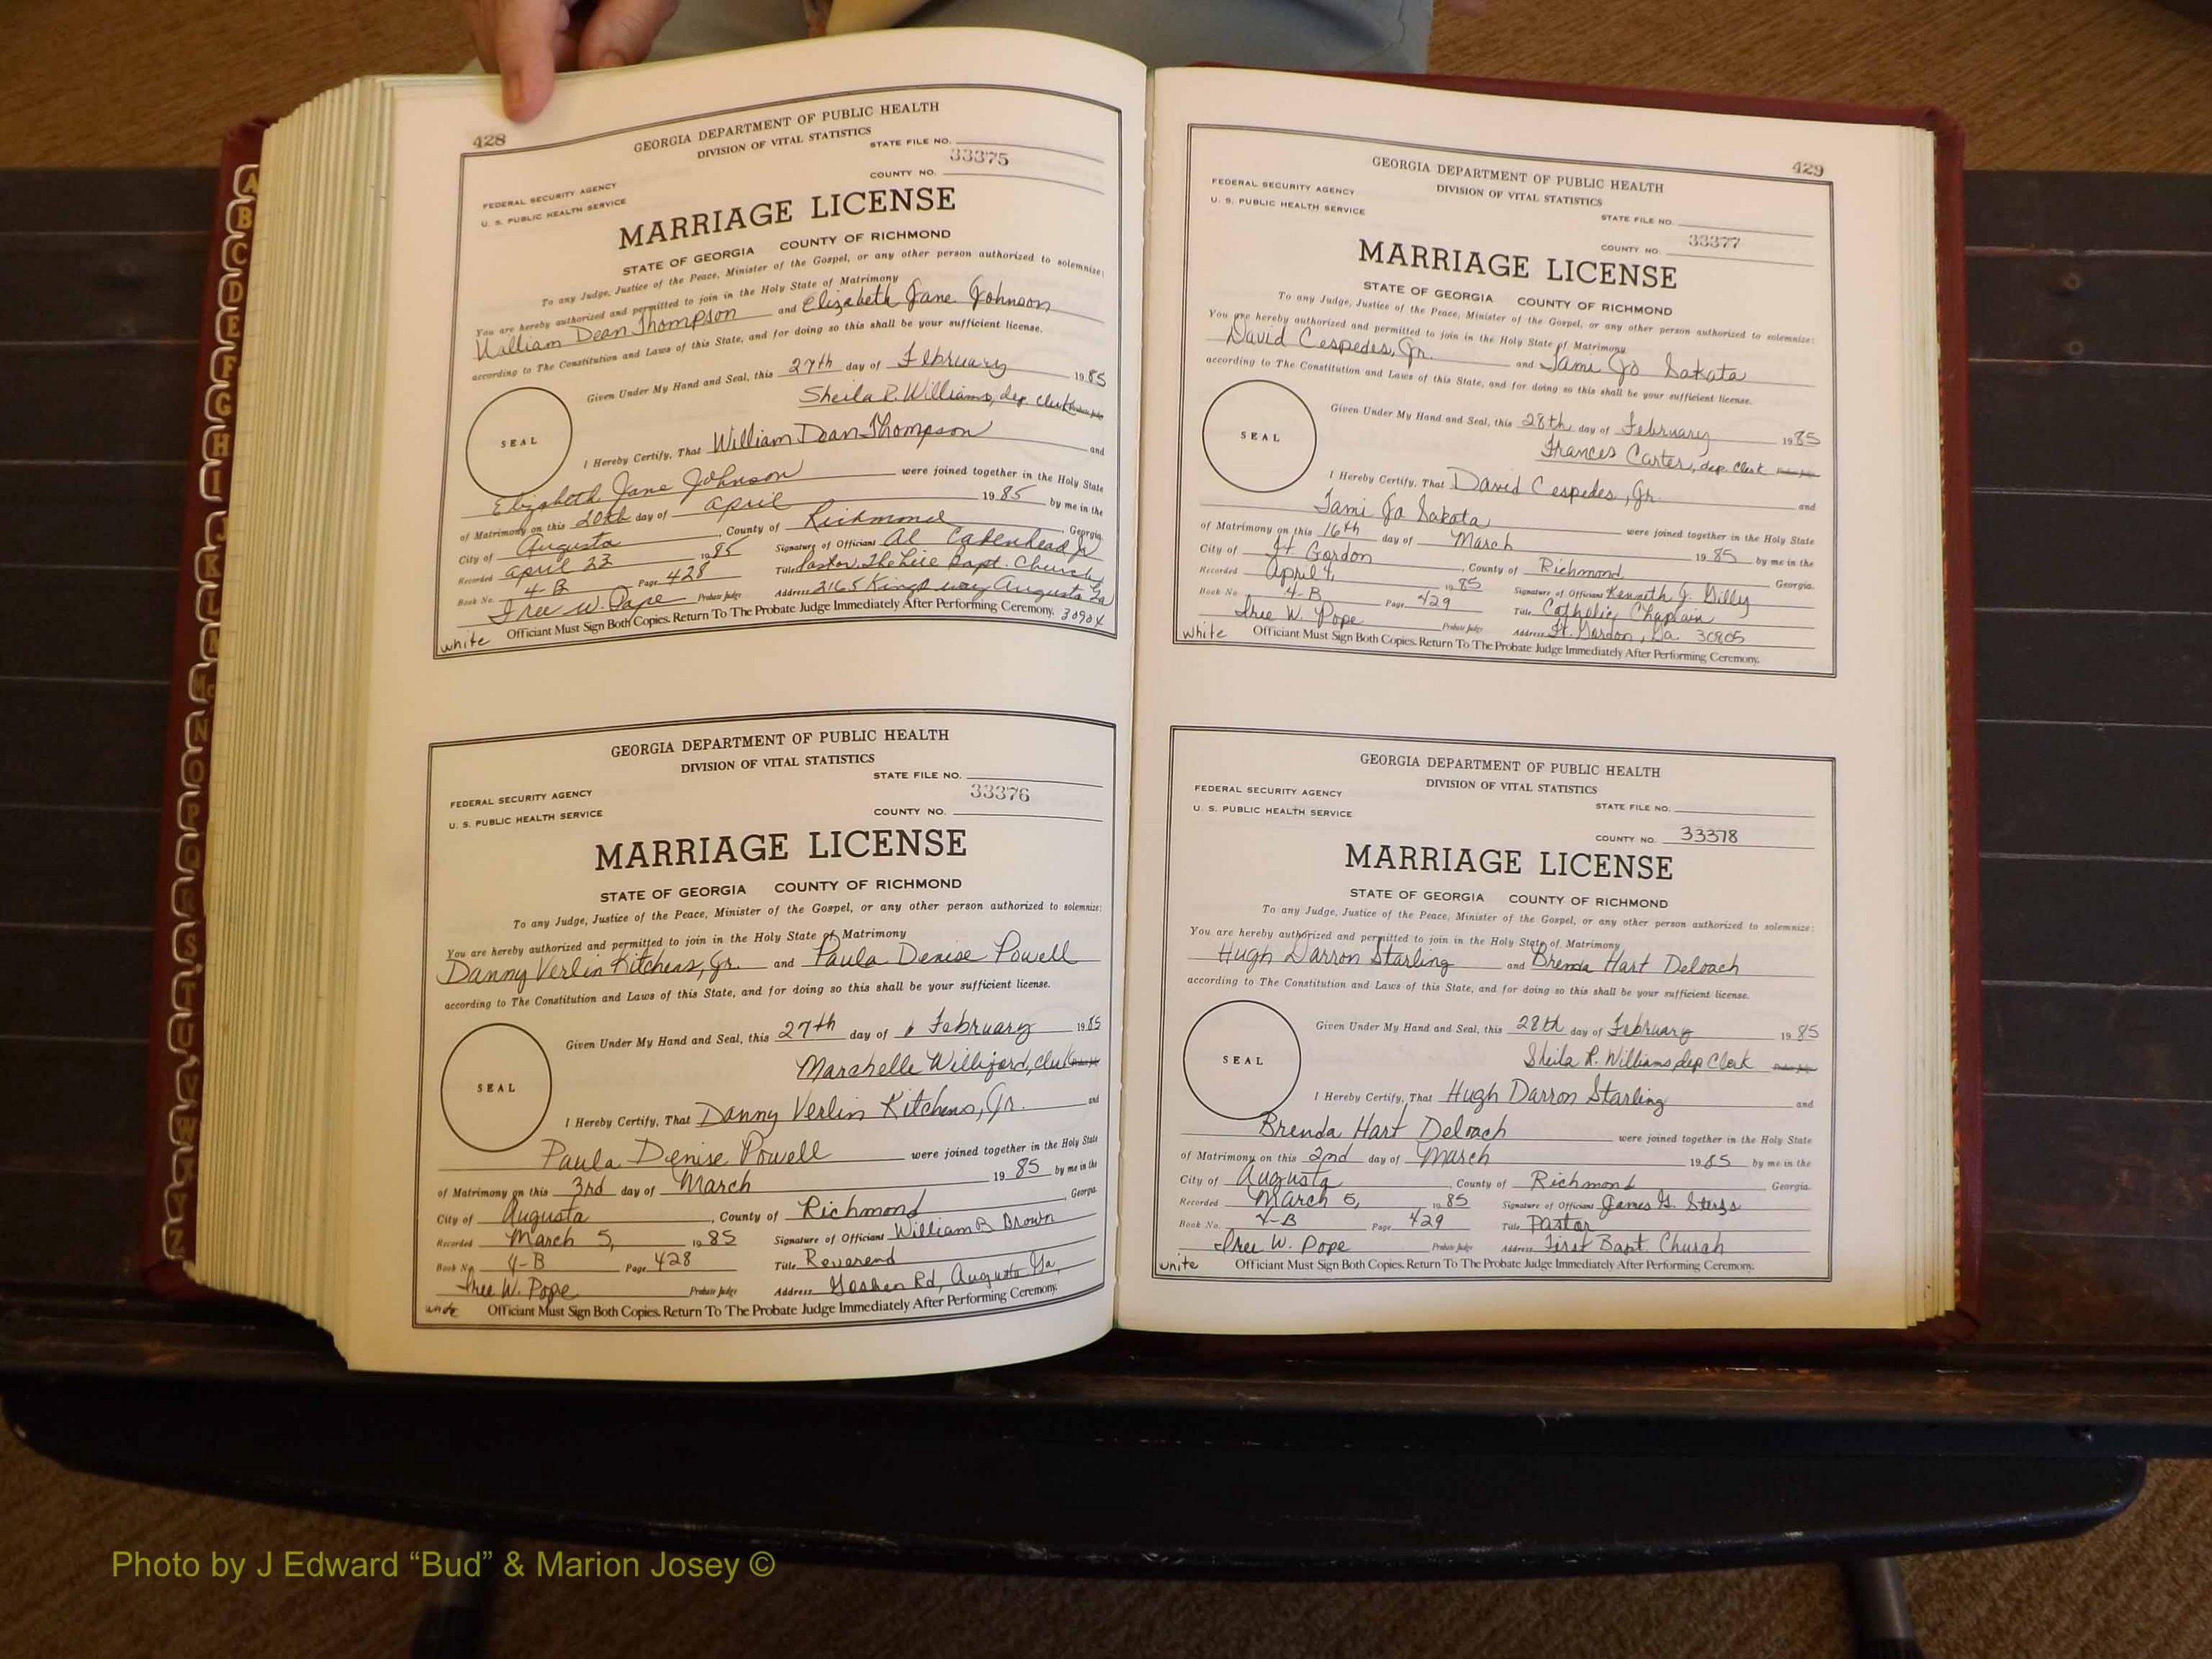 428
GEORGIA DEPARTMENT OF PUBLIC HEALTH
DIVISION OF VITAL STATISTICS
STATE FILE NO.
33375
COUNTY NO.
FEDERAL SECURITY AGENCY
U. S. PUBLIC HEALTH SERVICE
MARRIAGE LICENSE
STATE OF GEORGIA COUNTY OF RICHMOND
To any Judge, Justice of the Peace, Minister of the Gospel, or any other person authorized to solemnize:
You are hereby authorized and permitted to join in the Holy State of Matrimony
William Dean Thompson and Elizabeth Jane Johnson
according to The Constitution and Laws of this State, and for doing so this shall be your sufficient license.
Given Under My Hand and Seal, this 27th day of February 1985
Sheila R. Williams, dep. clerk Probate Judge
SEAL
I Hereby Certify, That William Dean Thompson and
Elizabeth Jane Johnson were joined together in the Holy State
of Matrimony on this 20th day of April 1985 by me in the
City of Augusta, County of Richmond, Georgia
Recorded April 23 1985 Signature of Officiant Al Cadenhead Jr
Book No. 4-B Page 428 Title Pastor The Hill Bapt. Church
Iree W. Pope Probate Judge Address 2165 Kings way Augusta Ga
30904
white Officiant Must Sign Both Copies. Return To The Probate Judge Immediately After Performing Ceremony.
GEORGIA DEPARTMENT OF PUBLIC HEALTH
DIVISION OF VITAL STATISTICS
STATE FILE NO.
33376
FEDERAL SECURITY AGENCY
U. S. PUBLIC HEALTH SERVICE
COUNTY NO.
MARRIAGE LICENSE
STATE OF GEORGIA COUNTY OF RICHMOND
To any Judge, Justice of the Peace, Minister of the Gospel, or any other person authorized to solemnize:
You are hereby authorized and permitted to join in the Holy State of Matrimony
Danny Verlin Kitchens, Jr. and Paula Denise Powell
according to The Constitution and Laws of this State, and for doing so this shall be your sufficient license.
Given Under My Hand and Seal, this 27th day of February 1985
Marchelle Williford, clerk Probate Judge
SEAL
I Hereby Certify, That Danny Verlin Kitchens, Jr. and
Paula Denise Powell were joined together in the Holy State
of Matrimony on this 3rd day of March 1985 by me in the
City of Augusta, County of Richmond, Georgia
Recorded March 5, 1985 Signature of Officiant William B Brown
Book No. 4-B Page 428 Title Reverend
Iree W. Pope Probate Judge Address Goshen Rd, Augusta Ga,
white Officiant Must Sign Both Copies. Return To The Probate Judge Immediately After Performing Ceremony.
429
GEORGIA DEPARTMENT OF PUBLIC HEALTH
DIVISION OF VITAL STATISTICS
FEDERAL SECURITY AGENCY
U. S. PUBLIC HEALTH SERVICE
STATE FILE NO.
COUNTY NO. 33377
MARRIAGE LICENSE
STATE OF GEORGIA COUNTY OF RICHMOND
To any Judge, Justice of the Peace, Minister of the Gospel, or any other person authorized to solemnize:
You are hereby authorized and permitted to join in the Holy State of Matrimony
David Cespedes, Jr. and Tami Jo Sakata
according to The Constitution and Laws of this State, and for doing so this shall be your sufficient license.
Given Under My Hand and Seal, this 28th day of February 1985
Frances Carter, dep. Clerk Probate Judge
SEAL
I Hereby Certify, That David Cespedes, Jr. and
Tami Jo Sakata were joined together in the Holy State
of Matrimony on this 16th day of March 1985 by me in the
City of Ft. Gordon, County of Richmond Georgia.
Recorded April 9, 1985 Signature of Officiant Kenneth J. Gilly
Book No. 4-B Page 429 Title Catholic Chaplain
Iree W. Pope Probate Judge Address Ft. Gordon, Ga. 30905
white Officiant Must Sign Both Copies. Return To The Probate Judge Immediately After Performing Ceremony.
GEORGIA DEPARTMENT OF PUBLIC HEALTH
DIVISION OF VITAL STATISTICS
FEDERAL SECURITY AGENCY
U. S. PUBLIC HEALTH SERVICE
STATE FILE NO.
COUNTY NO. 33378
MARRIAGE LICENSE
STATE OF GEORGIA COUNTY OF RICHMOND
To any Judge, Justice of the Peace, Minister of the Gospel, or any other person authorized to solemnize:
You are hereby authorized and permitted to join in the Holy State of Matrimony
Hugh Darron Starling and Brenda Hart Deloach
according to The Constitution and Laws of this State, and for doing so this shall be your sufficient license.
Given Under My Hand and Seal, this 28th day of February 1985
Sheila R. Williams, dep Clerk Probate Judge
SEAL
I Hereby Certify, That Hugh Darron Starling and
Brenda Hart Deloach were joined together in the Holy State
of Matrimony on this 2nd day of March 1985 by me in the
City of Augusta, County of Richmond Georgia.
Recorded March 5, 1985 Signature of Officiant James G.
Book No. 4-B Page 429 Title Pastor
Iree W. Pope Probate Judge Address First Bapt. Church
white Officiant Must Sign Both Copies. Return To The Probate Judge Immediately After Performing Ceremony.
A
B
C
D
E
F
G
H
I
J
K
L
M
Mc
N
O
P
Q
R
S
T
U
V
W
Y
Z
Photo by J Edward “Bud” & Marion Josey ©